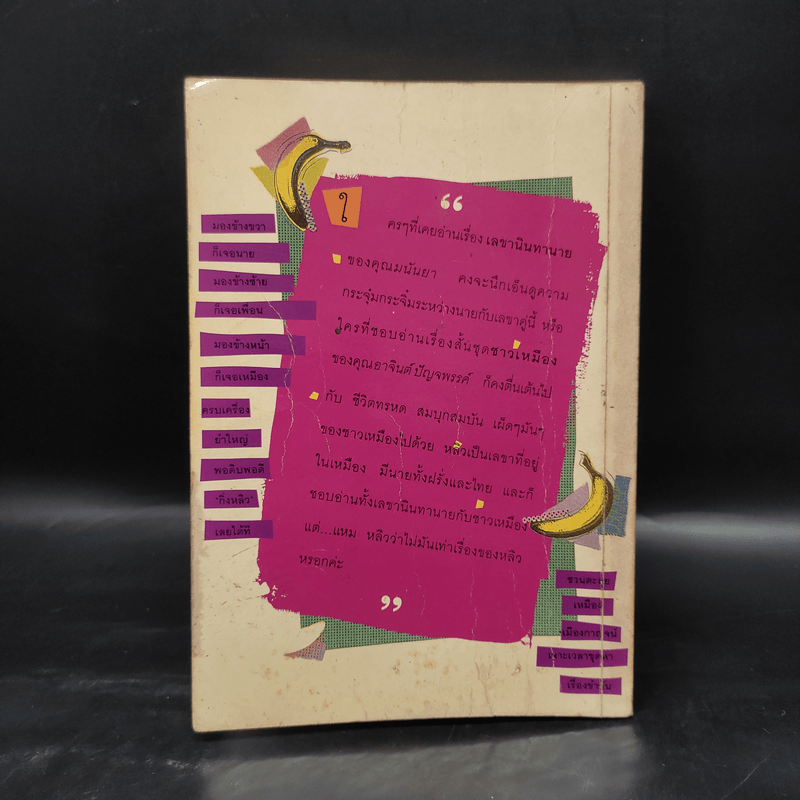 มองข้างขวา
ก็เจอนาย
มองข้างซ้าย
ก็เจอเพื่อน
มองข้างหน้า
ก็เจอเหมือง
ครบเครื่อง
ยำใหญ่
พอดิบพอดี
"กิ่งหลิว"
เลยได้ที
“
ใครๆที่เคยอ่านเรื่อง เลขานินทานาย
ของคุณมนันยา คงจะนึกเอ็นดูความ
กระจุ๋มกระจิ๋มระหว่างนายกับเลขาคู่นี้ หรือ
ใครที่ชอบอ่านเรื่องสั้นชุดชาวเหมือง
ของคุณอาจินต์ ปัญจพรรค์ ก็คงตื่นเต้นไป
กับ ชีวิตทรหด สมบุกสมบัน เผ็ดๆมันๆ
ของชาวเหมืองไปด้วย หลิวเป็นเลขาที่อยู่
ในเหมือง มีนายทั้งฝรั่งและไทย และก็
ชอบอ่านทั้งเลขานินทานายกับชาวเหมือง
แต่...แหม หลิวว่าไม่มันเท่าเรื่องของหลิว
หรอกค่ะ
”
ชวนตะลุย
เหมือง
เมืองกาญจน์
เจาะเวลาขุดหา
เรื่องขำขัน